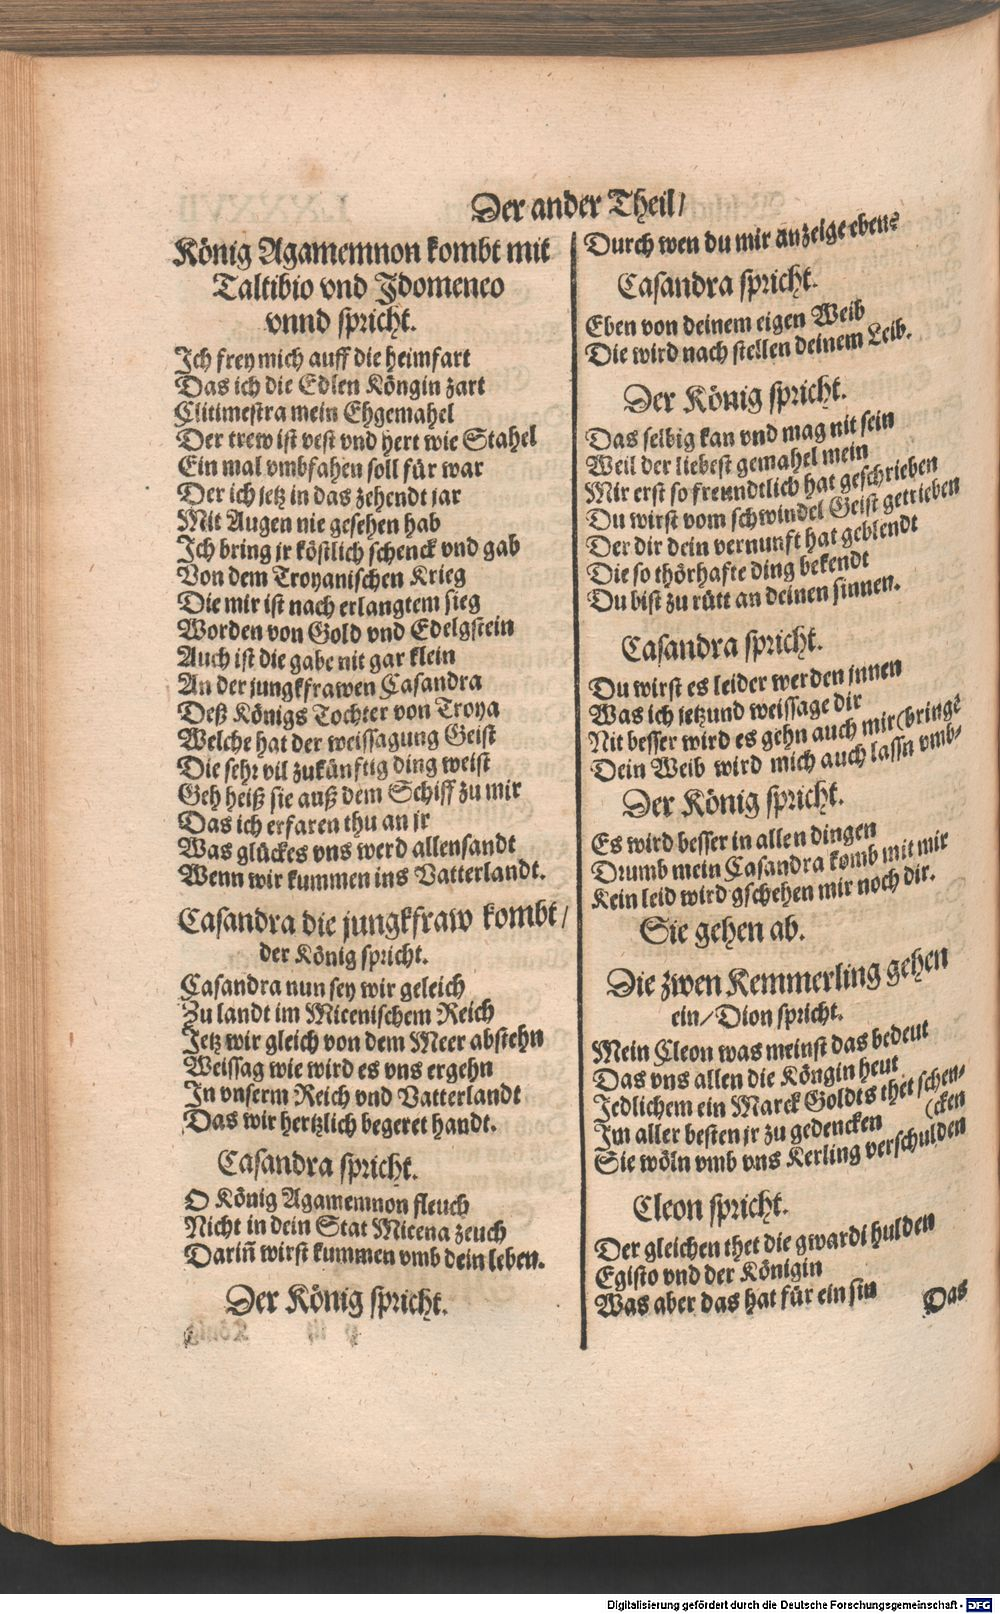 Der ander Theil/
König Agamemnon kombt mit
Taltibio vnd Jdomeneo
vnnd spricht.
Ich frey mich auff die heimfart
Das ich die Edlen Köngin zart
Clitimestra mein Ehgemahel
Der trew ist vest vnd hert wie Stahel
Ein mal vmbfahen soll für war
Der ich jetz in das zehendt jar
Mit Augen nie gesehen hab
Ich bring jr köstlich schenck vnd gab
Von dem Troyanischen Krieg
Die mir ist nach erlangtem sieg
Worden von Gold vnd Edelgstein
Auch ist die gabe nit gar klein
An der jungkfrawen Casandra
Deß Königs Tochter von Troya
Welche hat der weissagung Geist
Die sehr vil zukünftig ding weist
Geh heiß sie auß dem Schiff zu mir
Das ich erfaren thu an jr
Was glückes vns werd allensandt
Wenn wir kummen ins Vatterlandt.
Casandra die jungkfraw kombt/
der König spricht.
Casandra nun sey wir geleich
Zu landt im Micenischem Reich
Jetz wir gleich von dem Meer abstehn
Weissag wie wird es vns ergehn
In vnserm Reich vnd Vatterlandt
Das wir hertzlich begeret handt.
Casandra spricht.
O König Agamemnon fleuch
Nicht in dein Stat Micena zeuch
Dariñ wirst kummen vmb dein leben.
Der König spricht.
Durch wen du mir anzeige eben?
Casandra spricht.
Eben von deinem eigen Weib
Die wird nach stellen deinem Leib.
Der König spricht.
Das selbig kan vnd mag nit sein
Weil der liebest gemahel mein
Mir erst so freundtlich hat geschrieben
Du wirst vom schwindel Geist getrieben
Der dir dein vernunft hat geblendt
Die so thörhafte ding bekendt
Du bist zu rütt an deinen sinnen.
Casandra spricht.
Du wirst es leider werden jnnen
Was ich jetzund weissage dir
Nit besser wird es gehn auch mir (bringē
Dein Weib wird mich auch lassn vmb-
Der König spricht.
Es wird besser in allen dingen
Drumb mein Casandra komb mit mir
Kein leid wird gschehen mir noch dir.
Sie gehen ab.
Die zwen Kemmerling gehen
ein/ Dion spricht.
Mein Cleon was meinst das bedeut
Das vns allen die Köngin heut
Jedlichem ein Marck Goldts thet schen-
Im aller besten jr zu gedencken (cken
Sie wöln vmb vns Kerling verschulden
Cleon spricht.
Der gleichen thet die gwardi hulden
Egisto vnd der Königin
Was aber das hat für ein sin
Das
Digitalisierung gefördert durch die Deutsche Forschungsgemeinschaft - DFG